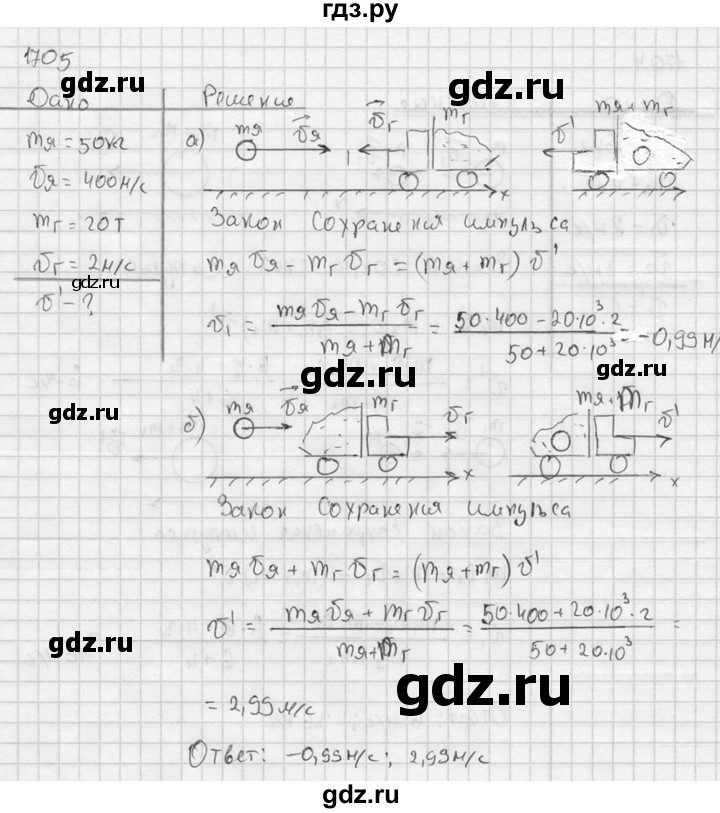 гдз.ру
1705
gdz.ru
gdz.ru
Дано
Решение
mя = 50кг
vя = 400м/с
mг = 20т
vг = 2м/с
gdz.ru
v' - ?
а)
mя
vя
vг
mг
v'
mя + mг
x
x
Закон Сохранения импульса
mя vя - mг vг = (mя + mг) v'
v₁ = (mя vя - mг vг)/(mя + mг) = (50·400 - 20·10³·2)/(50 + 20·10³) = -0,99м/
gdz.ru
gdz.ru
gdz.ru
б)
mя
vя
mг
vг
mя + mг
v'
x
x
Закон Сохранения импульса
mя vя + mг vг = (mя + mг) v'
v' = (mя vя + mг vг)/(mя + mг) = (50·400 + 20·10³·2)/(50 + 20·10³) =
gdz.ru
gdz.ru
= 2,99м/с
Ответ: -0,99м/с; 2,99м/с
gdz.ru
gdz.ru